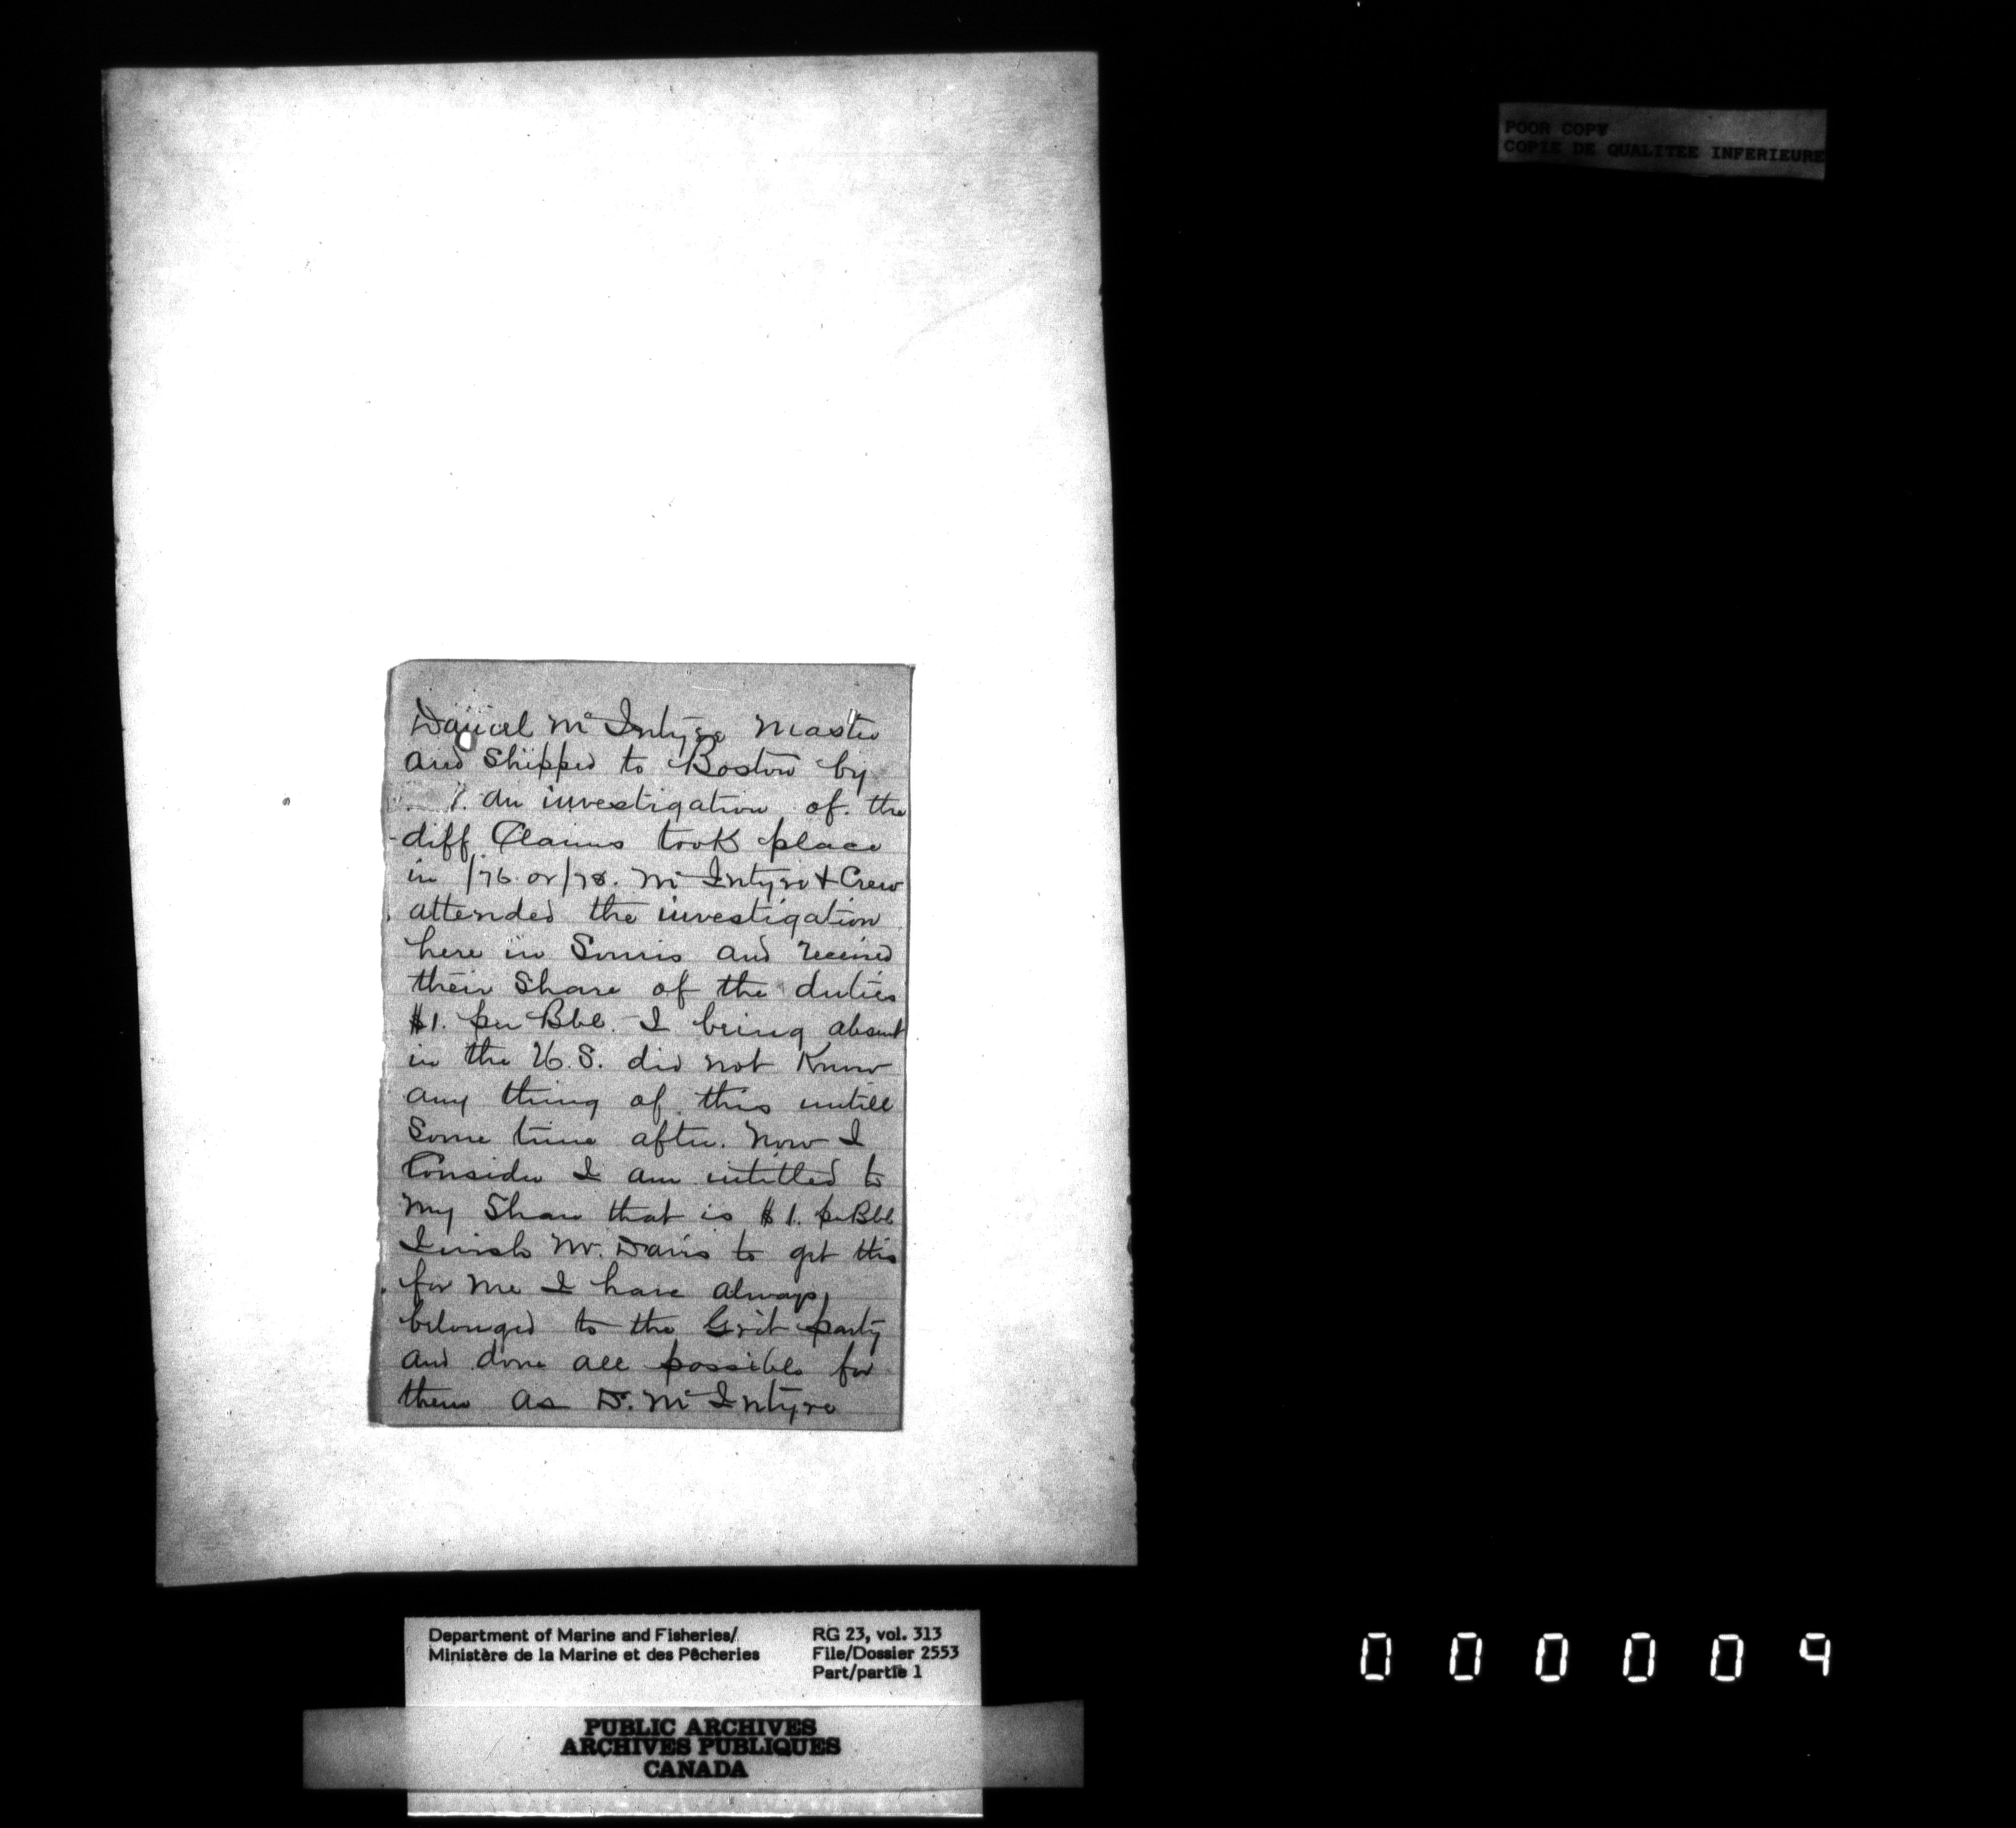 POOR COPY
COPIE DE QUALITEE INFERIEURE
Daniel Mc Intyre Master
and Shipped to Boston by
an investigation of the
diff Claims took place
in /76 or /78. Mc Intyre & Crew
attended the investigation
here in Souris and received
their Share of the duties
$1. per Bbl. I being absent
in the U.S. did not Know
any thing of this untill
Some time after. Now I
Consider I am intitled to
My Share that is $1. per Bbl
I wish Mr. Davis to get this
for Me I have always
belonged to the Grit party
and done all possible for
them as D. Mc Intyre
Department of Marine and Fisheries/
Ministère de la Marine et des Pêcheries
RG 23, vol. 313
File/Dossier 2553
Part/partie 1
PUBLIC ARCHIVES
ARCHIVES PUBLIQUES
CANADA
000009